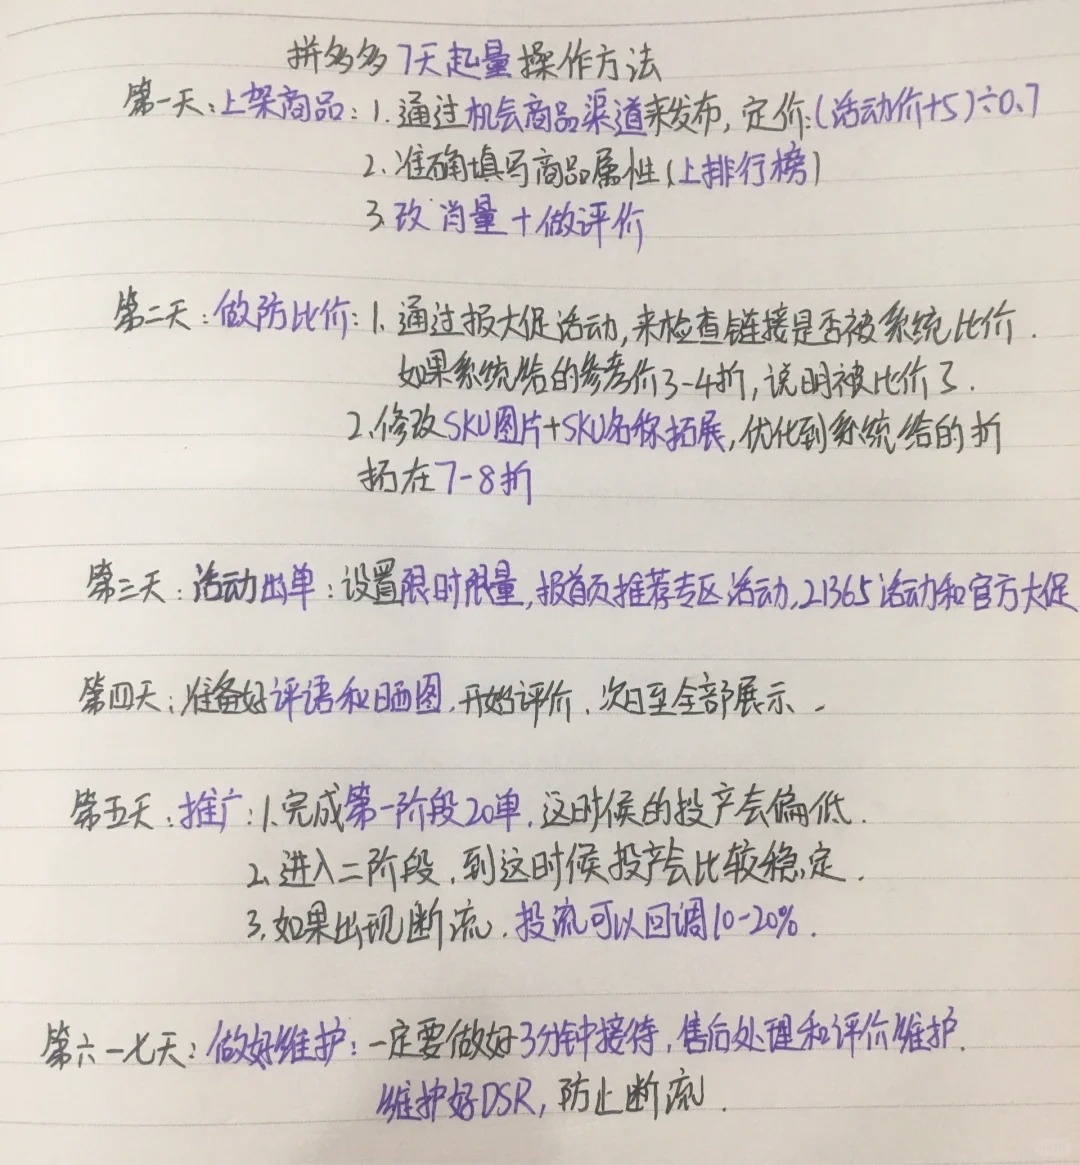 拼多多7天起量操作方法
第一天:上架商品:1.通过机会商品渠道来发布,定价:(活动价+5)÷0.7
2.准确填写商品属性(上排行榜)
3.改肖量+做评价
第二天:做防比价:1.通过报大促活动,来检查链接是否被系统比价.
如果系统给的参考价3-4折,说明被比价了.
2.修改SKU图片+SKU名称拓展,优化到系统给的折
扣在7-8折
第三天:活动出单:设置限时限量,报首页推荐专区活动,21365活动和官方大促
第四天:准备好评语和晒图.开始评价.次日至全部展示.
第五天:推广:1.完成第一阶段20单.这时候的投产会偏低.
2.进入二阶段.到这时候投产会比较稳定.
3.如果出现断流.投流可以回调10-20%.
第六一七天:做好维护:一定要做好3分钟接待,售后处理和评价维护.
维护好DSR,防止断流.